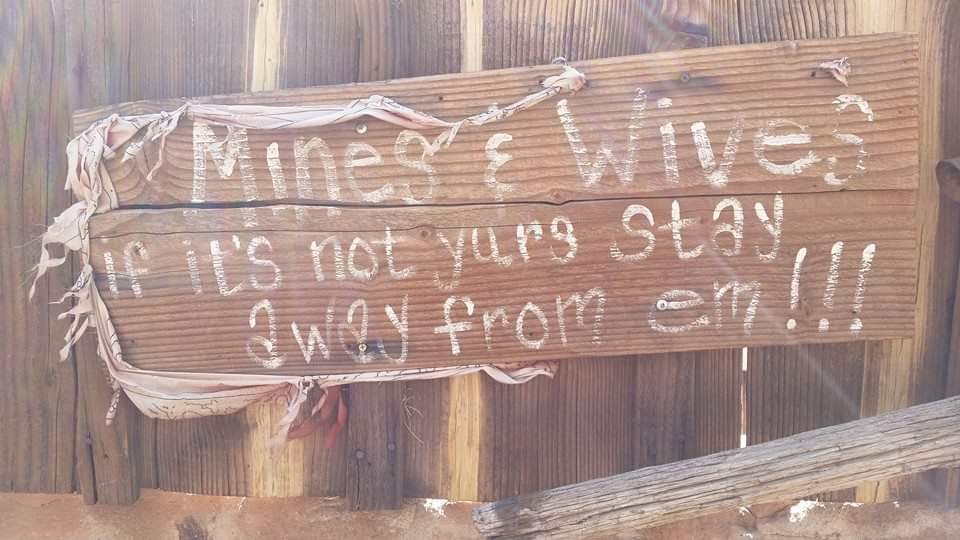 Mines & Wives
if it's not yurs stay
away from em!!!